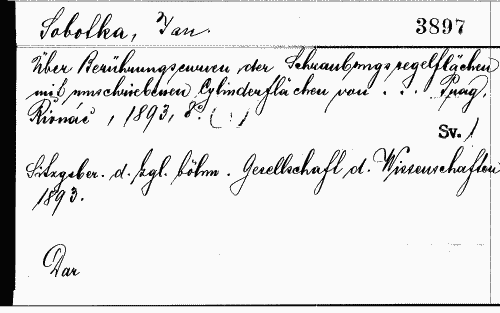 Sobotka, Jan.
3897
Über Berührungscurven der Schraubungsregelflächen
mit umschriebenen Cylinderflächen von . . . Prag,
Řivnáč, 1893, 8°. (:)
Sv. 1
Sitzgsber. d. kgl. böhm. Gesellschaft d. Wissenschaften
1893.
Dar